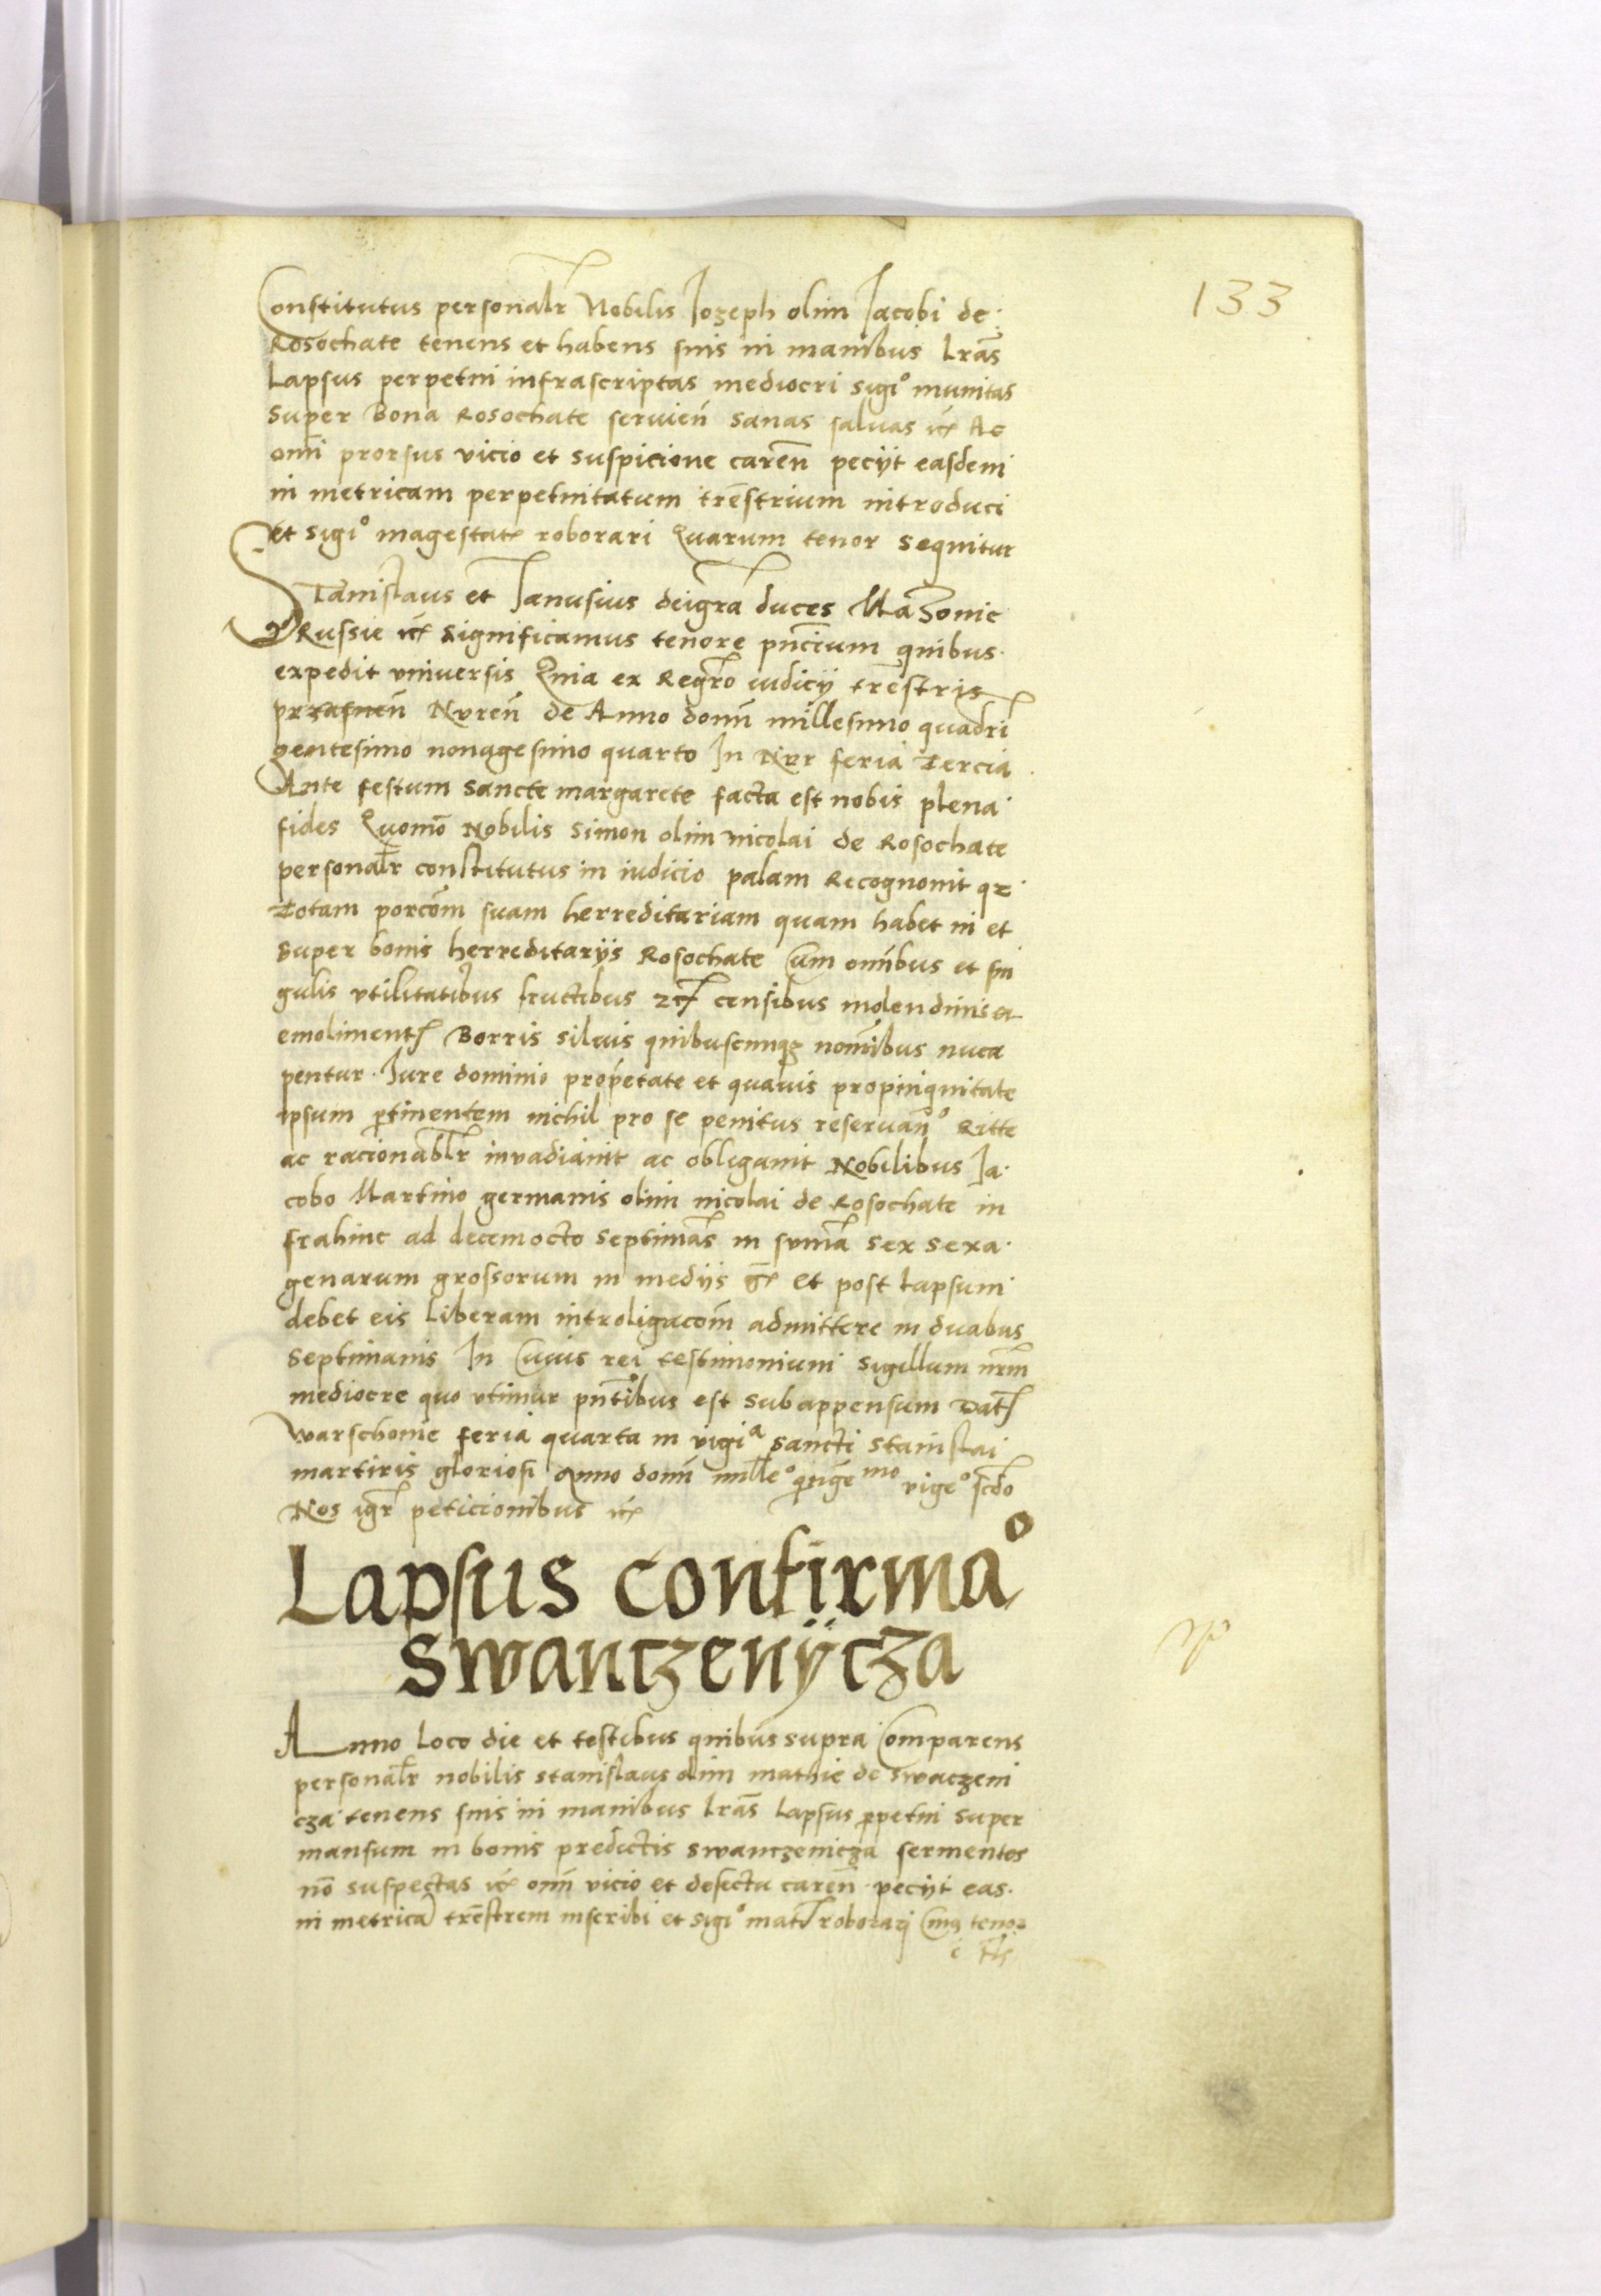 133
Constitutus personalr Nobilis Iozeph olim Iacobi de
Rosochate tenens et habens suis in manibus lras
Lapsus perpetui infrascriptas mediocri sigo munitas
Super Bona Rosochate servien sanas salvas etc Ac
omi prorsus vicio et suspicione caren peciit easdem
in metricam perpetuitatum trestrium introduci
et sigo magestatis roborari Quarum tenor sequitur
Stanislaus et Ianusius deigra duces Mazonie
Russie etc significamus tenore pncium quibus
expedit universis Quia ex Regro iudicij trestris
Nuren de Anno domi millesimo quadri
gentesimo nonagesimo quarto In Nur feria Tercia
Ante festum sancte margarete facta est nobis plena
fides Quomo Nobilis Simon olim nicolai de Rosochate
personalr constitutus in iudicio palam Recognovit qz
Totam porcom suam herreditariam quam habet in et
super bonis herreditarijs Rosochate Cum omibus et sin
gulis utilitatibus fructibus etc censibus molendinis et
emolimentis Borris silvis quibuscunqz nomibus nuca
pentur Iure dominio propetate et quavis propinquitate
ipsum ptinentem nichil pro se penitus reservano Ritte
ac racionablr invadiavit ac obligavit Nobilibus Ia
cobo Martino germanis olim nicolai de Rosochate in
frahinc ad decemocto septimas in suma sex sexa
genarum grossorum in medijs gr et post lapsum
debet eis liberam introligacom admittere in duabus
septimanis In Cuius rei testimonium sigillum nrm
mediocre quo utimur pntibus est subappensum Dat
warschonie feria quarta in vigia sancti stanislai
martiris gloriosi Anno domi milleo qtigemo vigeo scdo
Nos igr peticionibus etc
Lapsus confirmao
Swanczenÿcza
Anno loco die et testibus quibus supra Comparens
personalr nobilis stanislaus olim mathie de swaczeni
cza tenens suis in manibus lras lapsus ppetui super
mansum in bonis predictis swanczenicza sermentes
no suspectas etc omi vicio et defectu caren peciit eas
in metrica trestrem inscribi et sigo matis roborari Cuius tenor